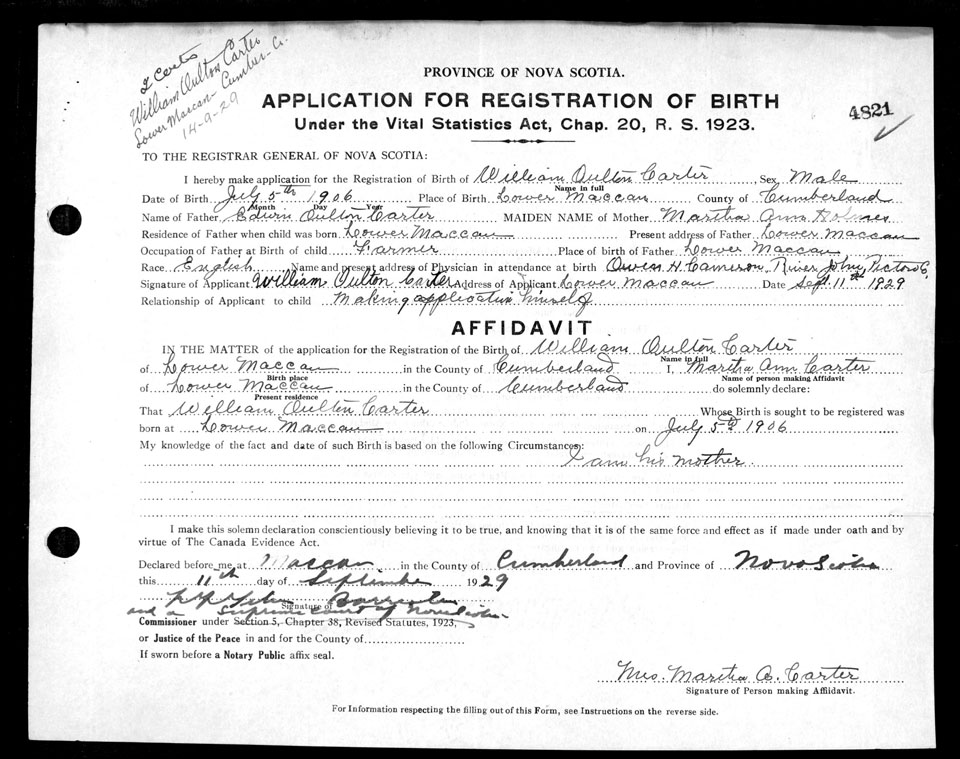 2 Certs
William Oulton Carter
Lower Maccan - Cumber. Co.
14-9-29
PROVINCE OF NOVA SCOTIA.
APPLICATION FOR REGISTRATION OF BIRTH
4821
Under the Vital Statistics Act, Chap. 20, R. S. 1923.
TO THE REGISTRAR GENERAL OF NOVA SCOTIA:
I hereby make application for the Registration of Birth of William Oulton Carter Sex Male
Name in full
Date of Birth July 5th 1906 Place of Birth Lower Maccan County of Cumberland
Month Day Year
Name of Father Edwin Oulton Carter MAIDEN NAME of Mother Martha Ann Holmes
Residence of Father when child was born Lower Maccan Present address of Father Lower Maccan
Occupation of Father at Birth of child Farmer Place of birth of Father Lower Maccan
Race English Name and present address of Physician in attendance at birth Owen H. Cameron, River John, Pictou Co,
Signature of Applicant William Oulton Carter Address of Applicant Lower Maccan Date Sept. 11th 1929
Relationship of Applicant to child Making application himself
AFFIDAVIT
IN THE MATTER of the application for the Registration of the Birth of William Oulton Carter
Name in full
of Lower Maccan in the County of Cumberland I, Martha Ann Carter
Birth place Name of person making Affidavit
of Lower Maccan in the County of Cumberland do solemnly declare:
Present residence
That William Oulton Carter Whose Birth is sought to be registered was
born at Lower Maccan on July 5th 1906
My knowledge of the fact and date of such Birth is based on the following Circumstances:
I am his mother.
I make this solemn declaration conscientiously believing it to be true, and knowing that it is of the same force and effect as if made under oath and by
virtue of The Canada Evidence Act.
Declared before me at Maccan in the County of Cumberland and Province of Nova Scotia
this 11th day of September 1929
Signature of
and a Supreme Court of Nova Scotia
Commissioner under Section 5, Chapter 38, Revised Statutes, 1923,
or Justice of the Peace in and for the County of
If sworn before a Notary Public affix seal.
Mrs. Martha A. Carter
Signature of Person making Affidavit.
For Information respecting the filling out of this Form, see Instructions on the reverse side.